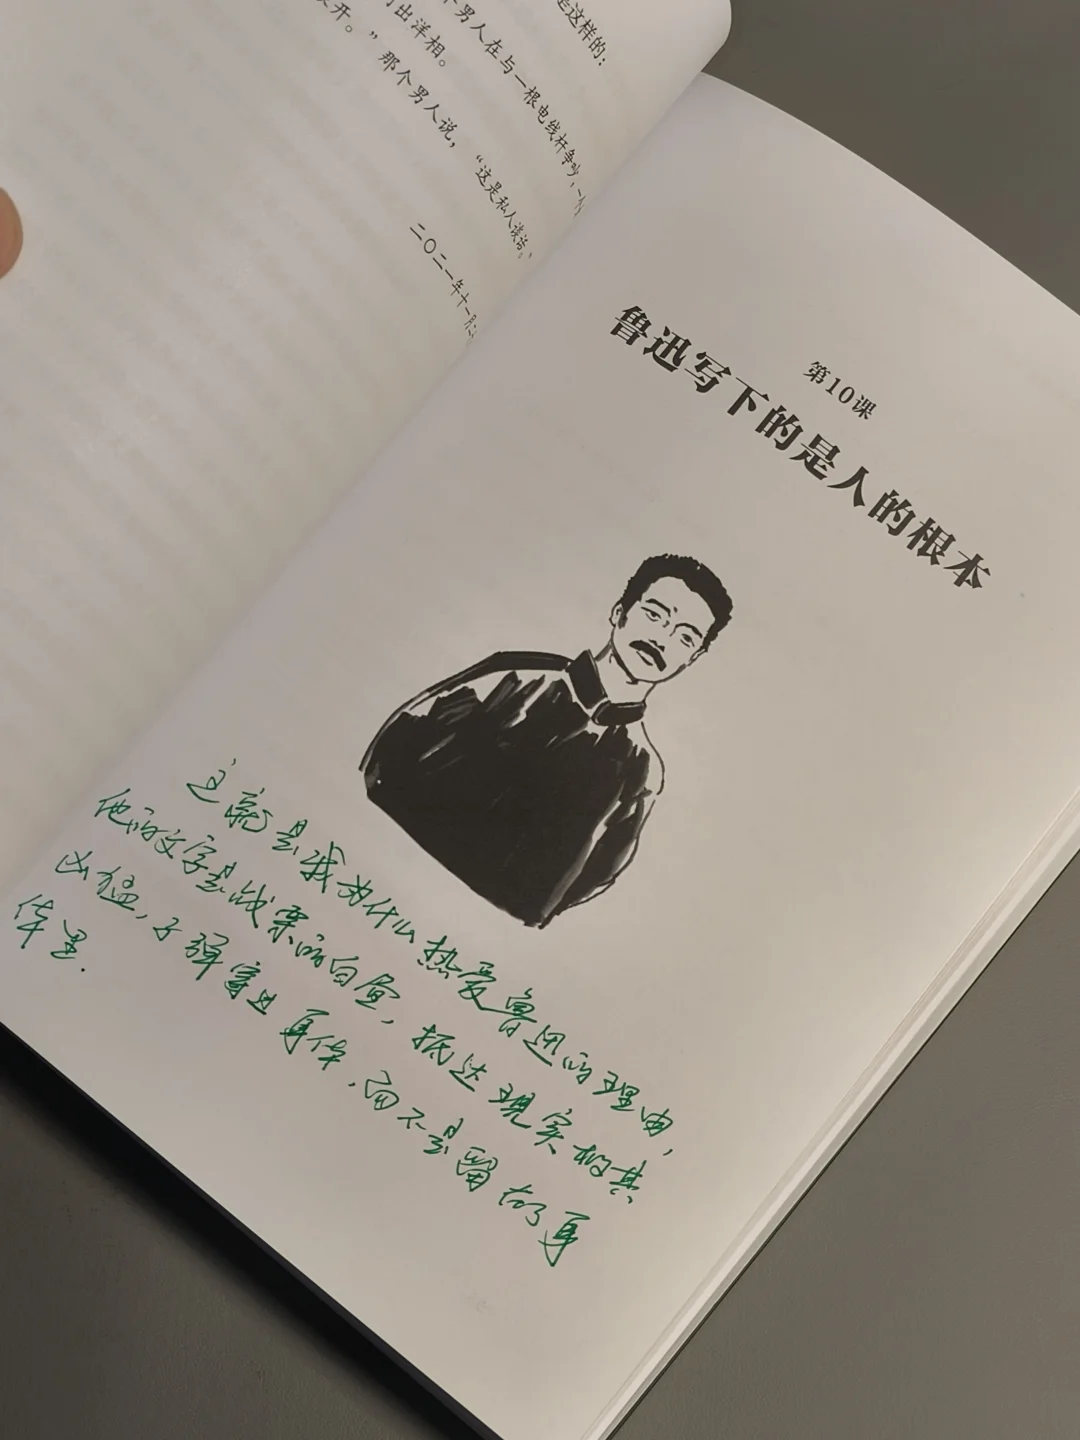 是这样的：
个男人在与一根电线杆争吵，一个
出洋相。
开。”那个男人说，“这是私人谈话。
二〇二一年十一月
第10课
鲁迅写下的是人的根本
这就是我为什么热爱鲁迅的理由，
他的文字是战栗的白昼，抵达现实极其
凶猛，子弹穿过身体，而不是留在了身
体里.